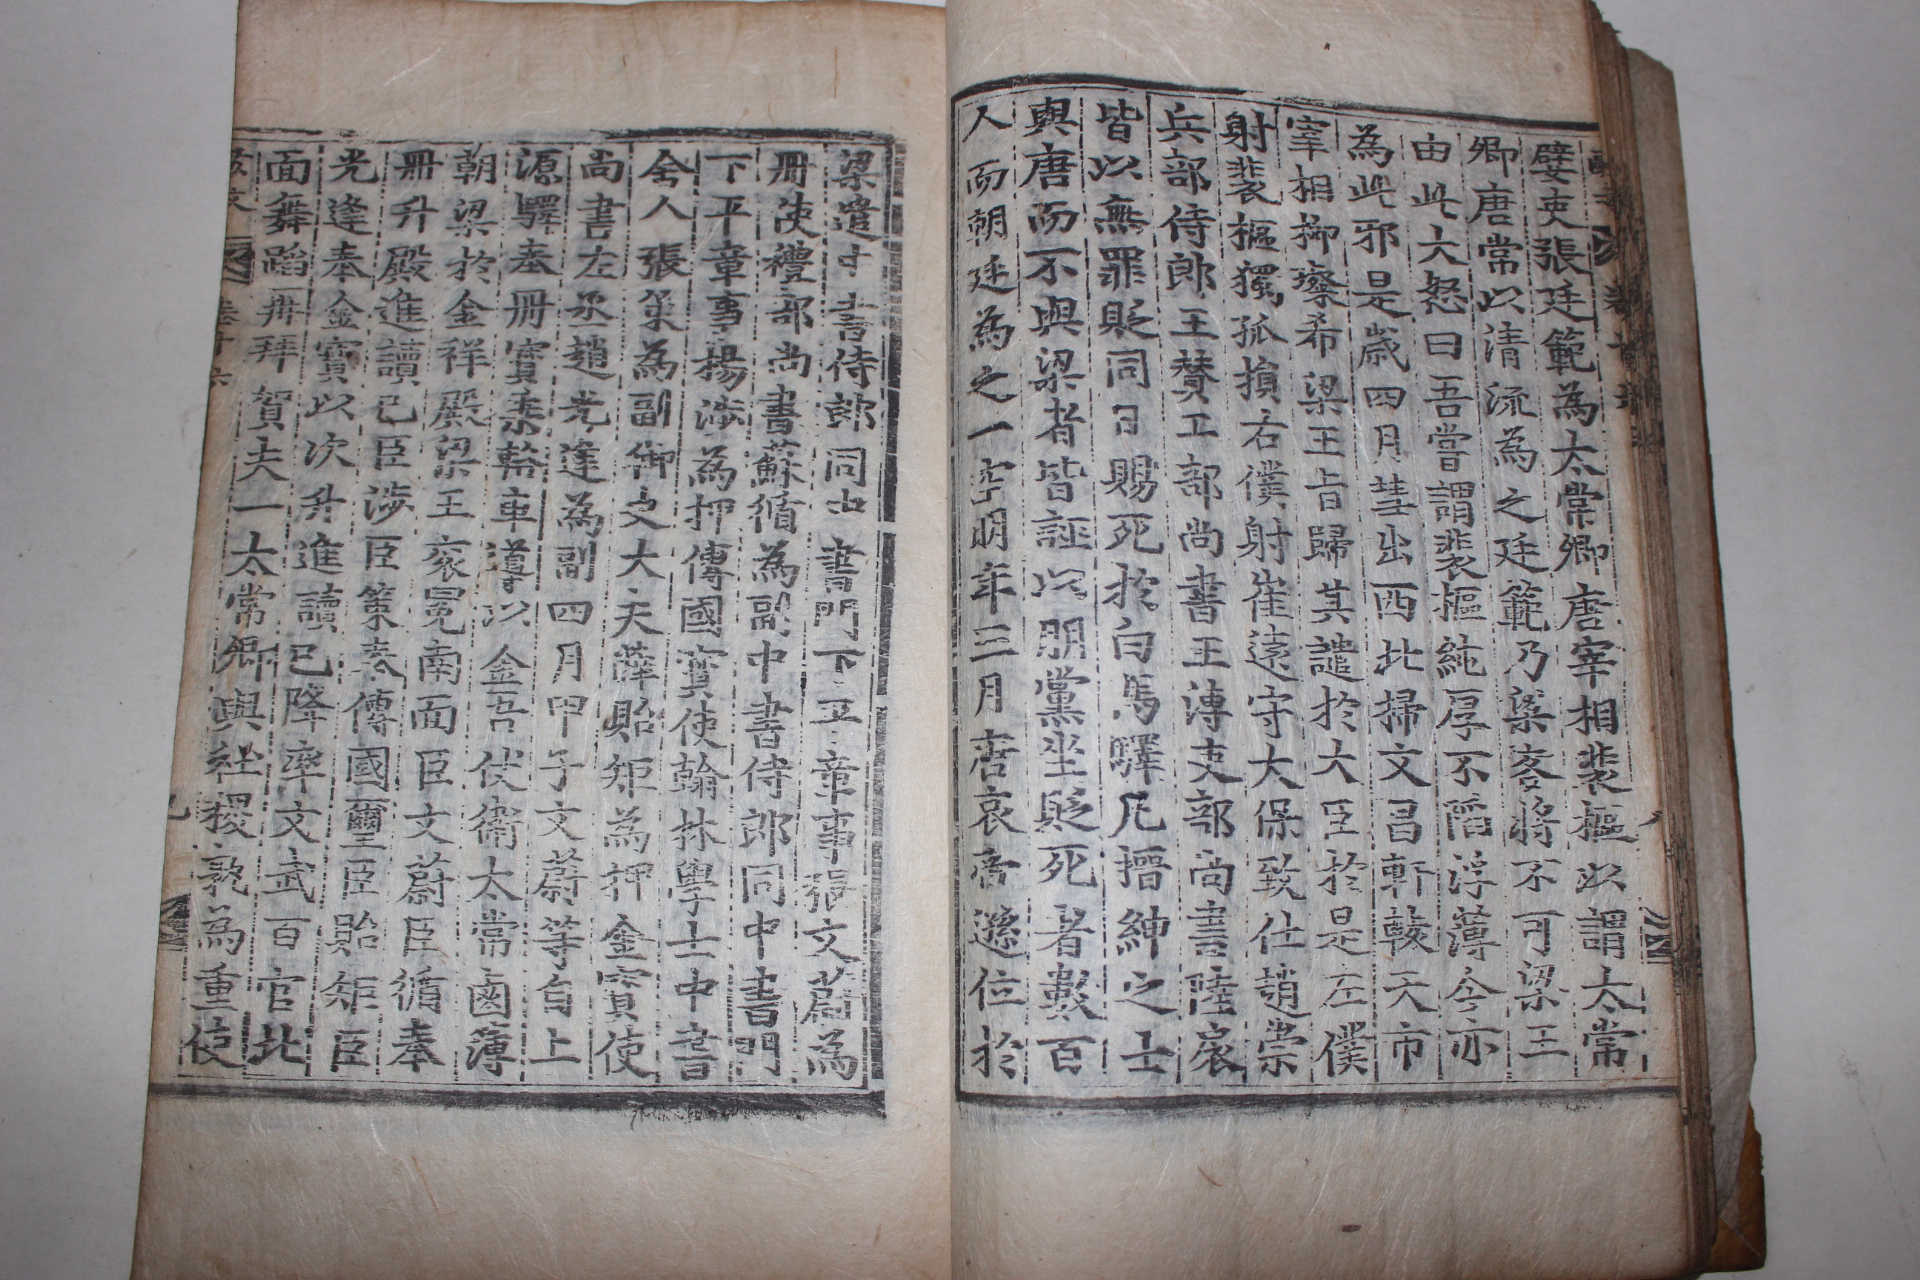 嬖吏張廷範為太常卿唐宰相裴樞以謂太常
卿唐常以清流為之廷範乃梁客將不可梁王
由此大怒曰吾嘗謂裴樞純厚不陷浮薄今亦
為此邪是歲四月彗出西北掃文昌軒轅天市
宰相柳璨希梁王旨歸其譴於大臣於是左僕
射裴樞獨孤損右僕射崔遠守太保致仕趙崇
兵部侍郎王贊工部尚書王溥吏部尚書陸扆
皆以無罪貶同日賜死於白馬驛凡搢紳之士
與唐而不與梁者皆誣以朋黨坐貶死者數百
人而朝廷為之一空明年三月唐哀帝遜位於
梁遣中書侍郎同中書門下平章事張文蔚為
冊使禮部尚書蘇循為副中書侍郎同中書門
下平章事楊涉為押傳國寶使翰林學士中書
舍人張策為副御史大夫薛貽矩為押金寶使
尚書左丞趙光逢為副四月甲子文蔚等自上
源驛奉冊寶乘輅車導以金吾仗衛太常鹵簿
朝梁於金祥殿梁王衮冕南面臣文蔚臣循奉
冊升殿進讀已臣涉臣策奉傳國璽臣貽矩臣
光逢奉金寶以次升進讀已降率文武百官北
面舞蹈再拜賀夫一太常卿與社稷孰為重使
卷十六